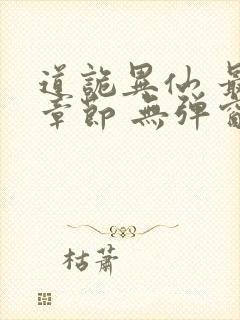 道詭異仙 最
章節 無弹窗
枯蕭